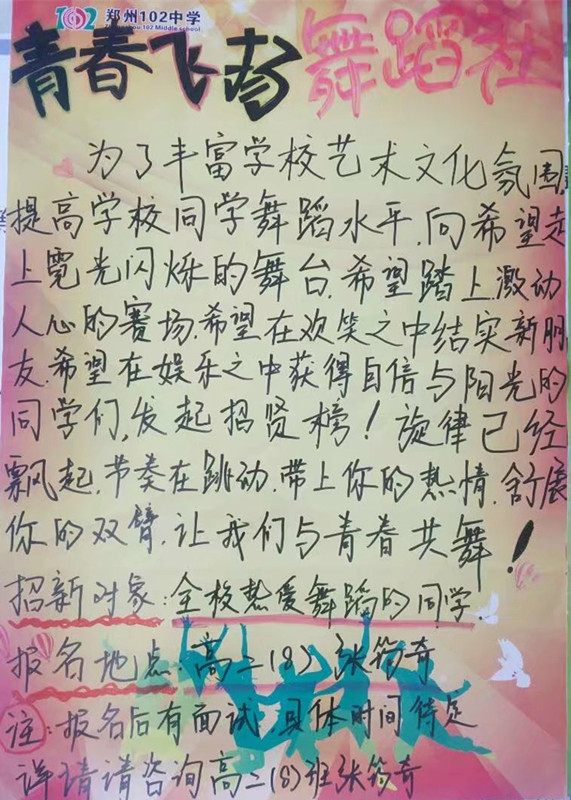 102 郑州102中学
Zhengzhou 102 Middle school
青春飞扬舞蹈社
为了丰富学校艺术文化氛围
提高学校同学舞蹈水平,向希望走
上霓光闪烁的舞台,希望踏上激动
人心的赛场,希望在欢笑之中结实新朋
友,希望在娱乐之中获得自信与阳光的
同学们,发起招贤榜!旋律已经
飘起,节奏在跳动,带上你的热情,舒展
你的双臂,让我们与青春共舞!
招新对象:全校热爱舞蹈的同学.
报名地点:高二(8) 张筠奇
注:报名后有面试,具体时间待定
详请请咨询高二(8)班张筠奇